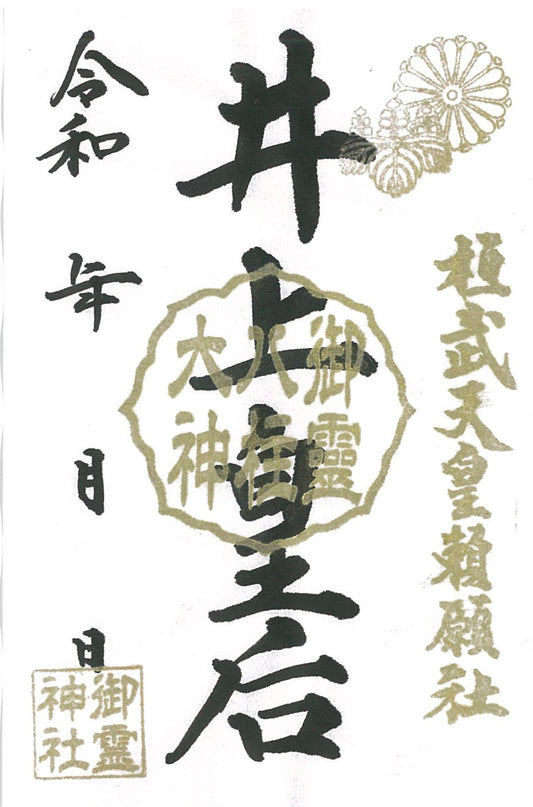 桓武天皇頼願社
井上皇后
御霊
八柱
大神
令和 年 月 日
御霊
神社